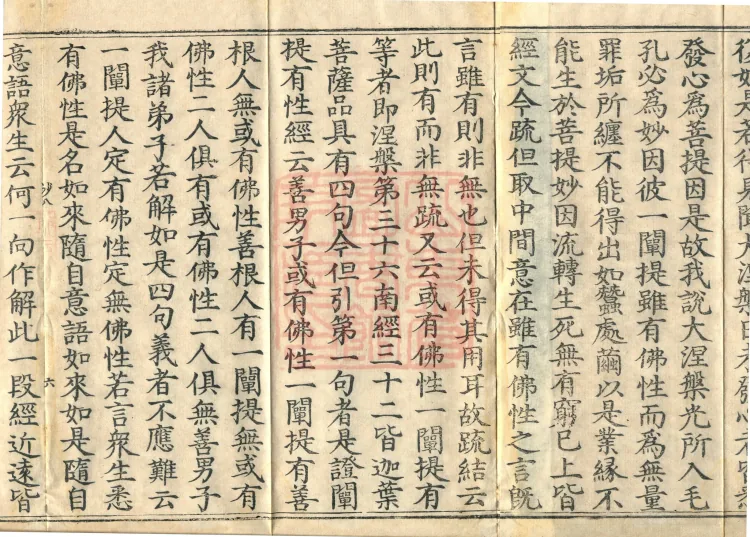 發心爲菩提因是故我說大涅槃光所入毛
孔必爲妙因彼一闡提雖有佛性而爲無量
罪垢所纏不能得出如蠶處繭以是業緣不
能生於菩提妙因流轉生死無有窮已上皆
經文今疏但取中間意在雖有佛性之言既
言雖有則非無也但未得其用耳故疏結云
此則有而非無疏又云或有佛性一闡提有
等者即涅槃第三十六南經三十二皆迦葉
菩薩品具有四句今但引第一句者是證闡
提有性經云善男子或有佛性一闡提有善
根人無或有佛性善根人有一闡提無或有
佛性二人俱有或有佛性二人俱無善男子
我諸弟子若解如是四句義者不應難云
一闡提人定有佛性定無佛性若言衆生悉
有佛性是名如來隨自意語如來如是隨自
六
意語衆生云何一向作解此一段經近遠皆